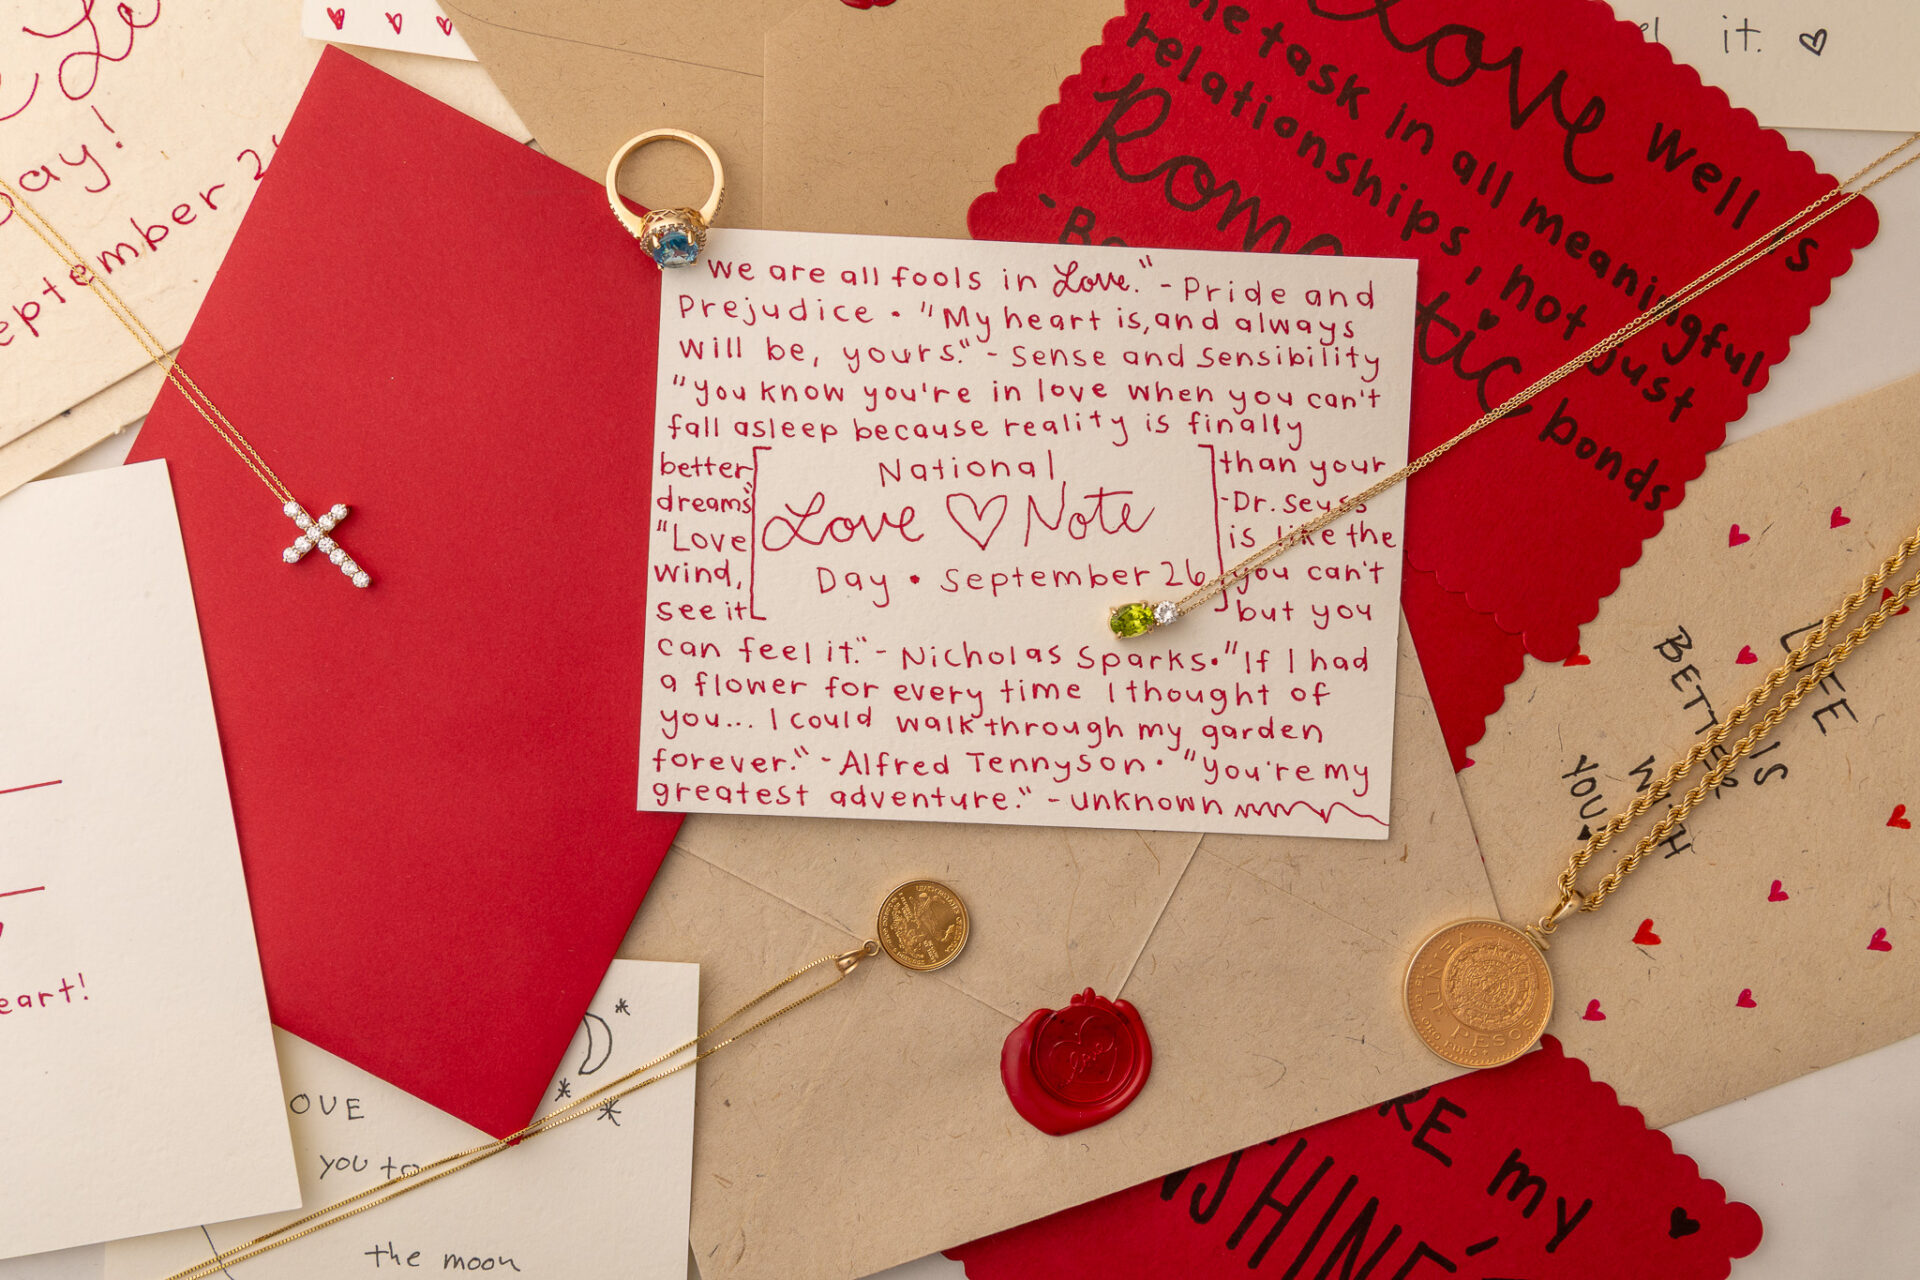 ay!
eptember 2
it. ♡
Love well is
task in all meaningful
relationships, not just
bonds
"we are all fools in Love." - Pride and
Prejudice • "My heart is, and always
will be, yours." - Sense and Sensibility
"you know you're in love when you can't
fall asleep because reality is finally
better than your
dreams" - Dr. Seuss
"Love is like the
wind, you can't
see it but you
National
Love ♡ Note
Day • September 26
can feel it." - Nicholas Sparks • "If I had
a flower for every time I thought of
you... I could walk through my garden
forever." - Alfred Tennyson • "you're my
greatest adventure." - unknown
LIFE
IS
BETTER
WITH
YOU
eart!
OVE
YOU to
the moon
love
RE my
SHINE